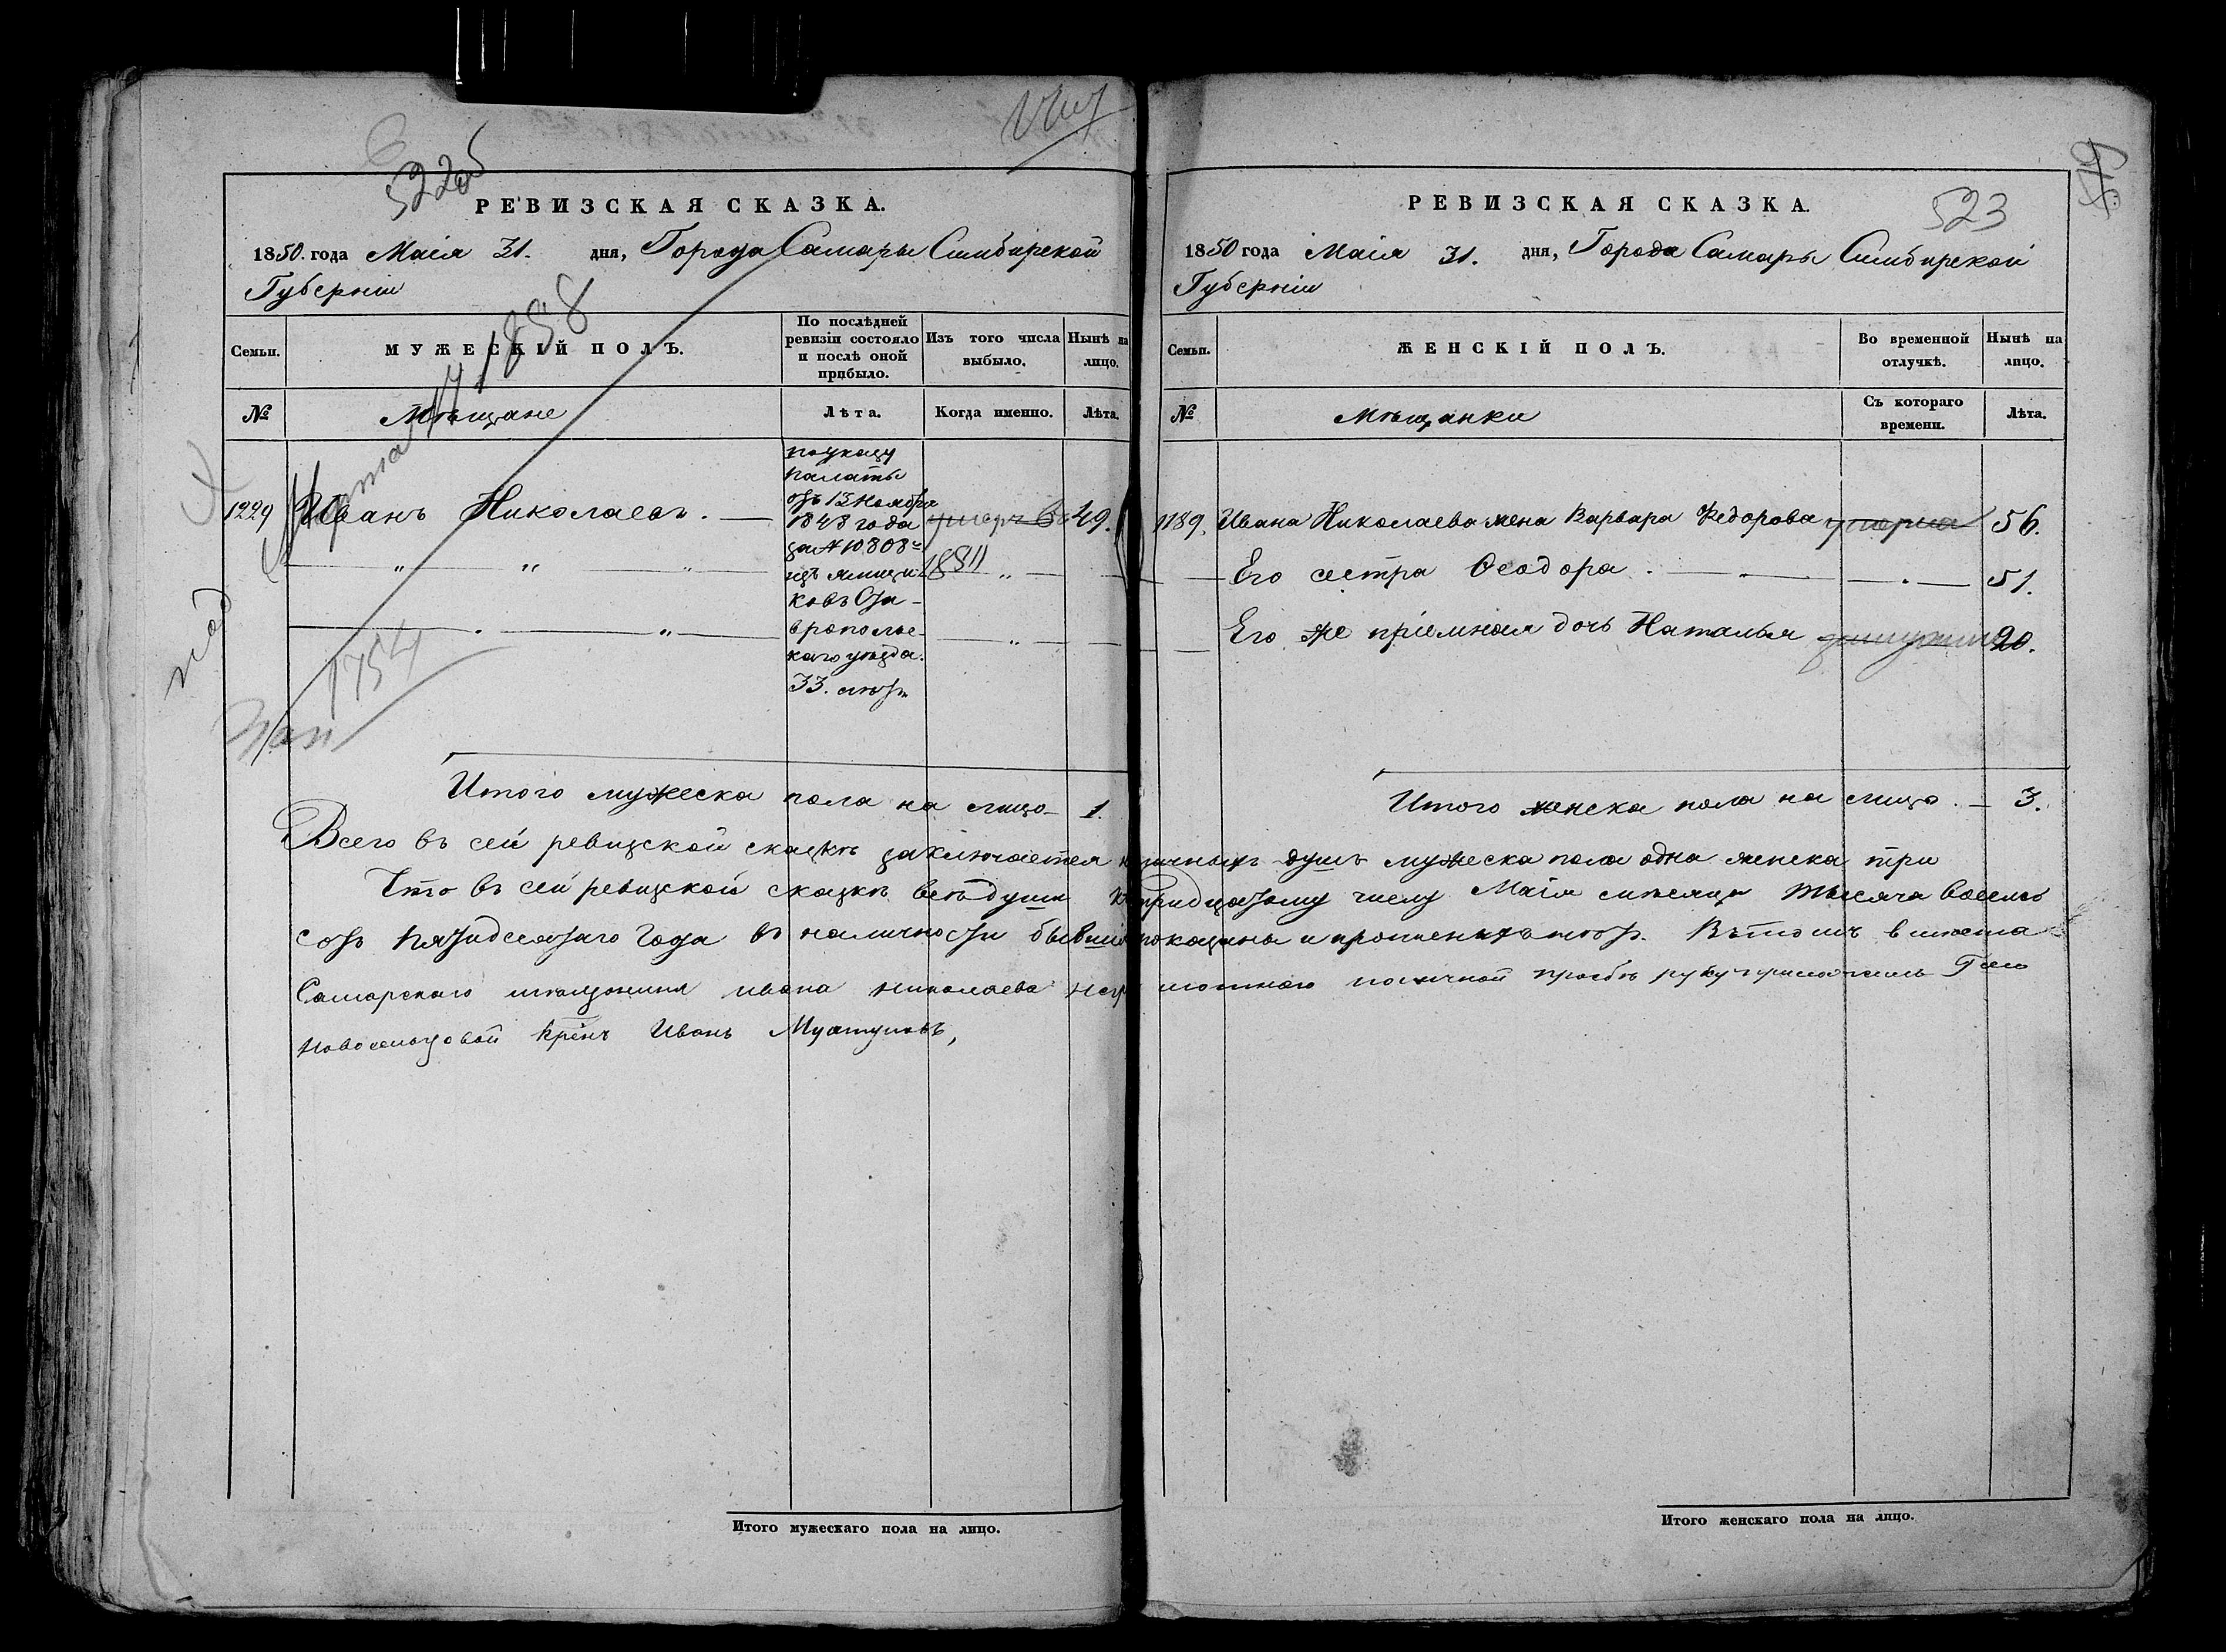 522об
РЕВИЗСКАЯ СКАЗКА.
1850. года Маія 31. дня, Города Самары Симбирской
Губерніи
Семьи. МУЖЕСКІЙ ПОЛЪ. По послѣдней ревизіи состояло и послѣ оной прибыло. Изъ того числа выбыло. Нынѣ на лицо.
№ Мѣщане Лѣта. Когда именно. Лѣта.
1858
по указу
палаты
отъ 13 Ноября
1229 Иванъ Николаевъ. 1848 года умеръ въ 49.
за № 10808
изъ ямщи- 1851
ковъ Ста-
вропольс-
каго уѣзда.
33. лѣтъ
1754
Итого мужеска пола на лицо 1.
523
РЕВИЗСКАЯ СКАЗКА.
1850 года Маія 31. дня, Города Самары Симбирской
Губерніи
Семьи. ЖЕНСКІЙ ПОЛЪ. Во временной отлучкѣ. Нынѣ на лицо.
№ Мѣщанки Съ котораго времени. Лѣта.
1189. Ивана Николаева жена Варвара Федорова умерла 56.
Его сестра Ѳеодора 51.
Его же пріемная дочь Наталья 20.
Итого женска пола на лицо. 3.
Всего въ сей ревизской сказкѣ заключается наличныхъ душъ мужеска пола одна женска три
Что въ сей ревизской сказкѣ всѣ души къ тридцатому числу Маія мѣсяца тысяча восемь
сотъ пятидесятаго года въ наличности бывшія показаны и пропженыхъ нѣтъ. Въ томъ вмѣсто
Самарскаго мѣщанина Ивана Николаева неграмотнаго по личной прозбѣ руку приложилъ
Новосельцовой Крѣнъ Иванъ
Итого мужескаго пола на лицо.
Итого женскаго пола на лицо.